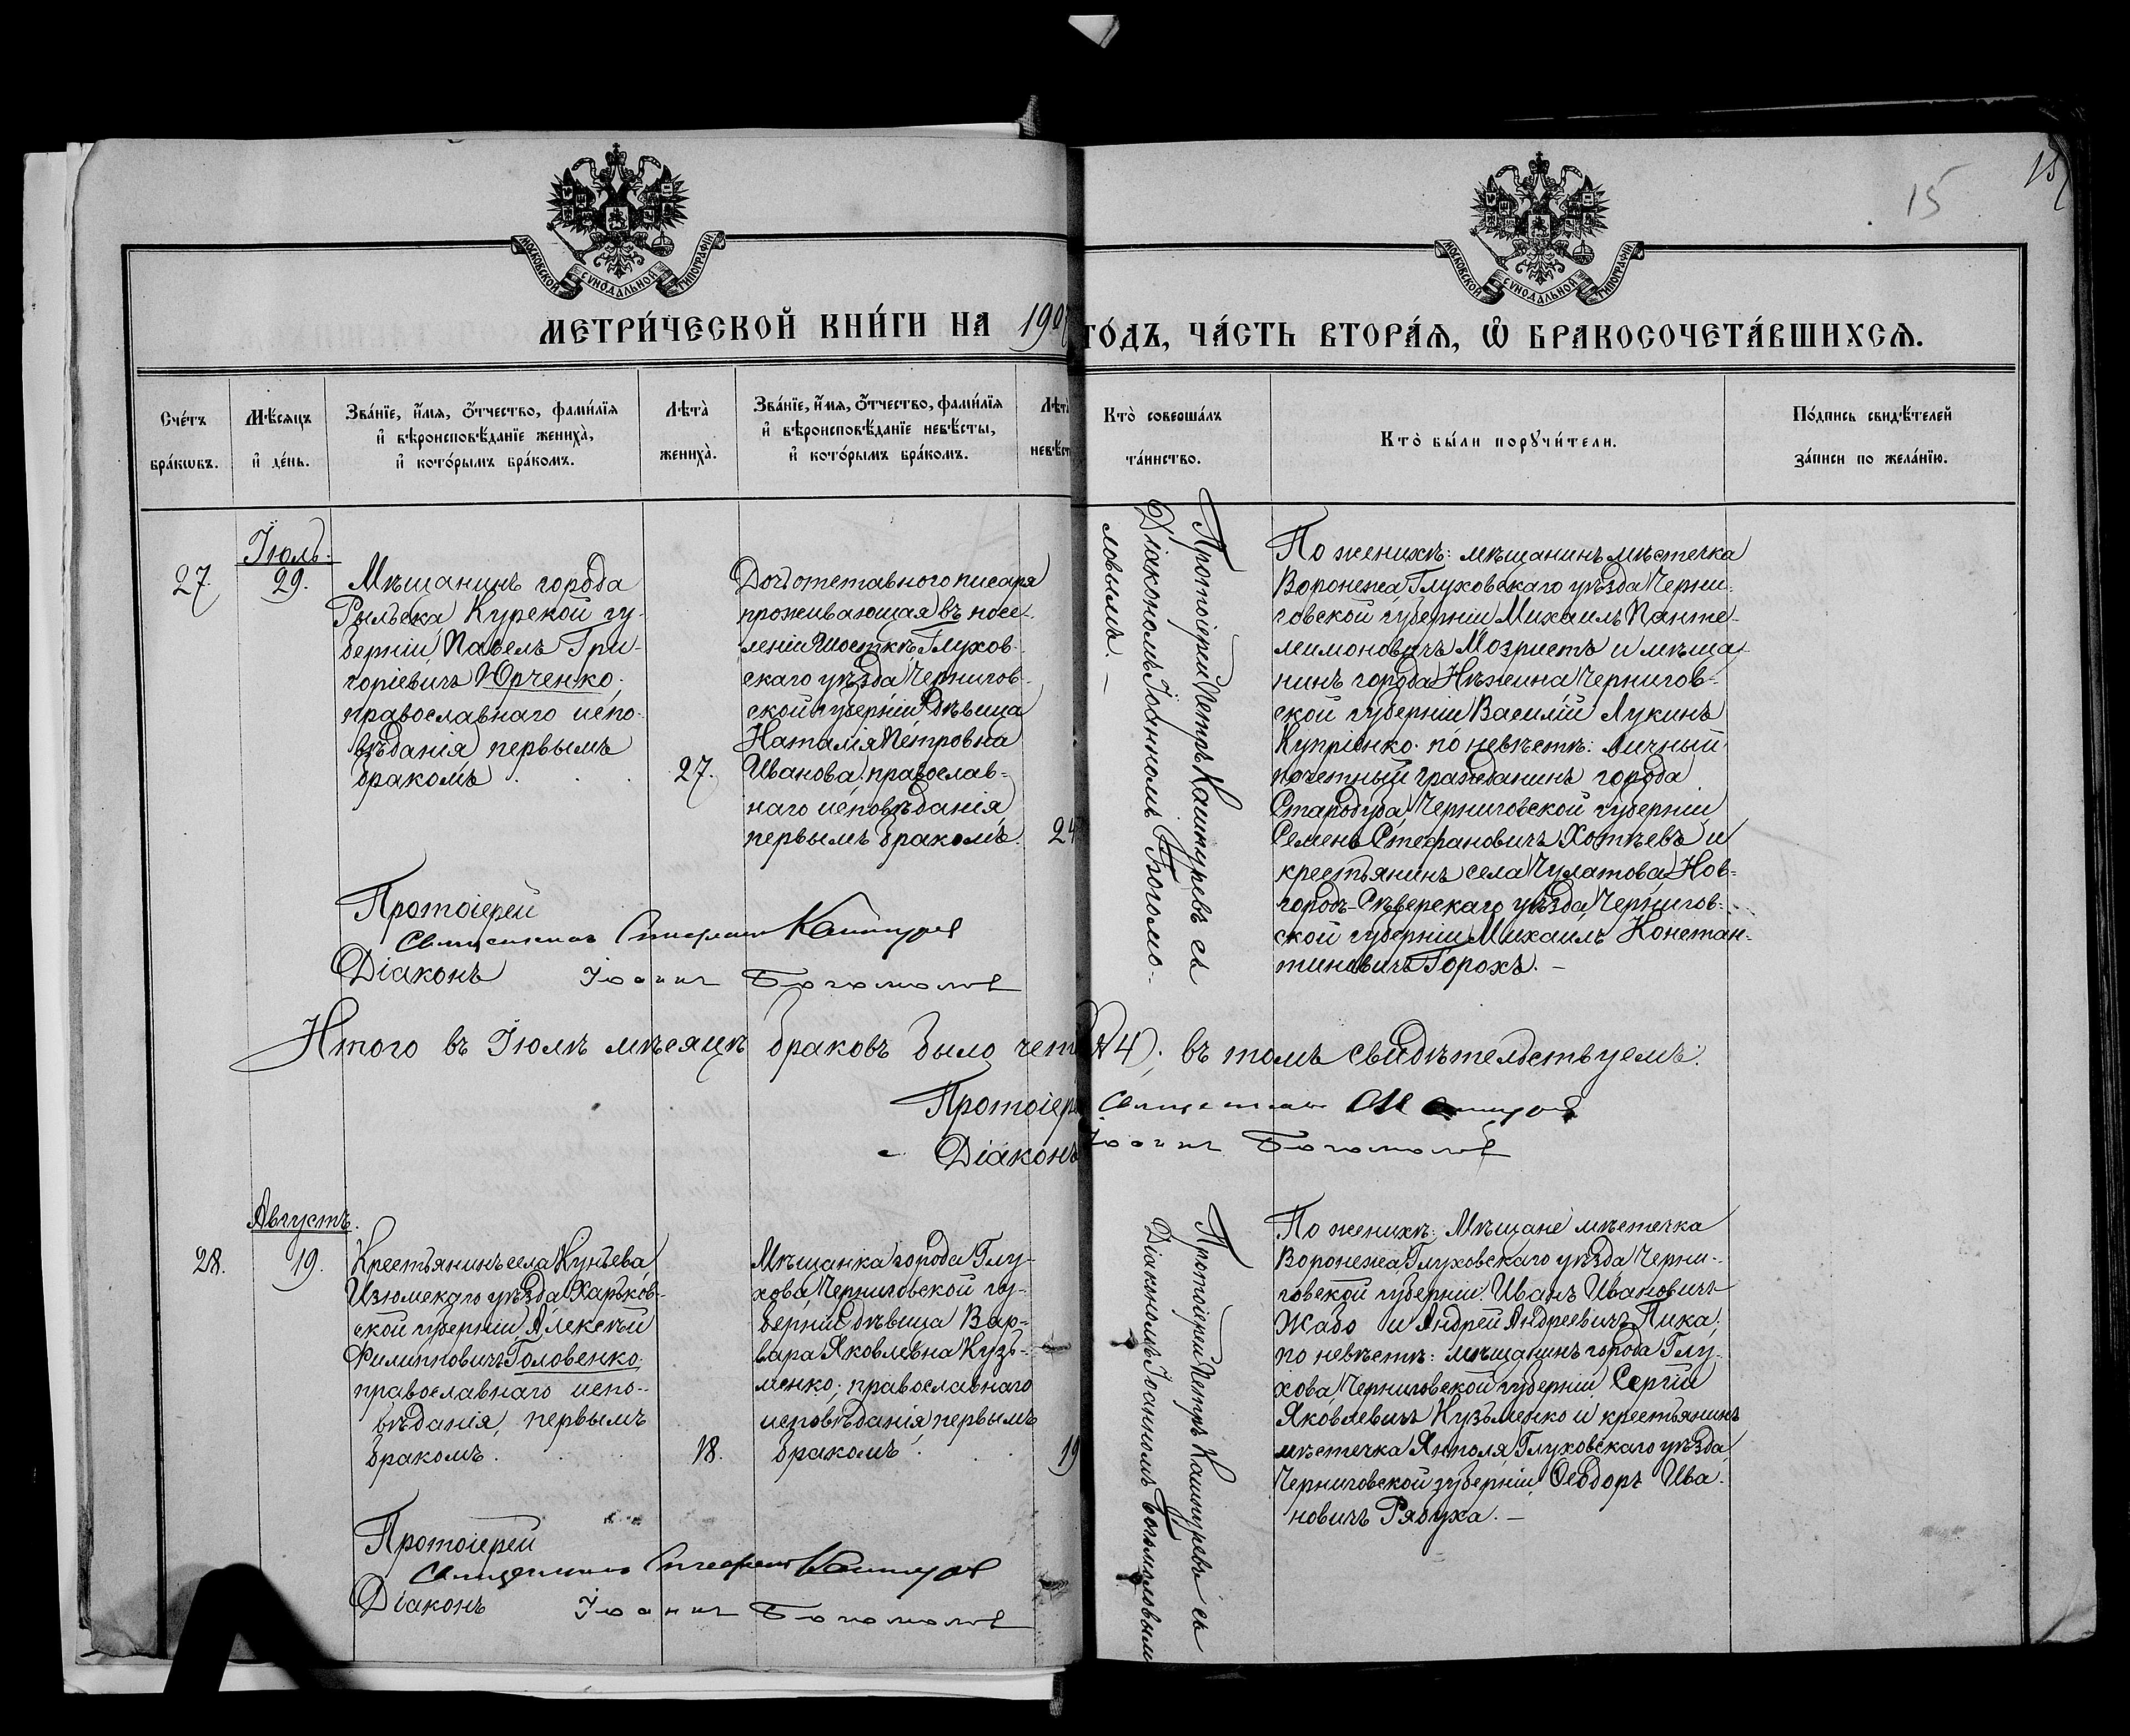 15
15
МОСКОВСКОЙ СѴНОДАЛЬНОЙ ТИПОГРАФІИ
МОСКОВСКОЙ СѴНОДАЛЬНОЙ ТИПОГРАФІИ
МЕТРИ́ЧЕСКОЙ КНИ́ГИ НА 190
ГО́ДЪ, ЧА́СТЬ ВТОРА́Ѧ, Ѽ БРАКОСОЧЕТА́ВШИХСѦ.
Сче́тъ
бра́кѡвъ.
Мѣ́сяцъ
и҆ де́нь.
Зва́нїе, и҆́мя, ѻ҆́тчество, фами́лїя
и҆ вѣроисповѣ́данїе жениха̀,
и҆ кото́рымъ бра́комъ.
Лѣ́та̀
жениха̀.
Зва́нїе, и҆́мя, ѻ҆́тчество, фами́лїя
и҆ вѣроисповѣ́данїе невѣ́сты,
и҆ кото́рымъ бра́комъ.
Лѣ́та̀
невѣ́ст
Кто̀ соверша́лъ
та́инство.
Кто̀ бы́ли порꙋчи́тели.
По́дпись свидѣ́телей
за́писи по жела́нїю.
27.
Іюль.
29.
Мѣщанинъ города
Рыльска Курской гу-
берніи, Павелъ Гри-
горіевичъ Юрченко,
православнаго испо-
вѣданія, первымъ
бракомъ
27.
Дочь отставного писаря
проживающая въ посе-
леніи Шосткѣ Глухов-
скаго уѣзда Чернигов-
ской губерніи, дѣвица
Наталія Петровна
Иванова, православ-
наго исповѣданія,
первымъ бракомъ.
24
Протоіерей Петръ Кашпуревъ съ
Діакономъ Іоанномъ Богомо-
ловымъ. —
По женихѣ: мѣщанинъ мѣстечка
Воронежа, Глуховскаго уѣзда Черни-
говской губерніи Михаилъ Панте-
леимоновичъ и мѣща-
нинъ города Нѣжина Чернигов-
ской губерніи Василій Лукинъ
Купріенко. по невѣстѣ: личный
почетный гражданинъ города
Стародуба, Черниговской губерніи
Семенъ Стефановичъ Хотѣевъ и
крестьянинъ села Чулатова, Нов-
городъ-Сѣверскаго уѣзда, Чернигов-
ской губерніи Михаилъ Констан-
тиновичъ Горохъ. —
Протоіерей
Священникъ Кашпуревъ
Діаконъ Іоаннъ Богомоловъ
Итого въ Іюлѣ мѣсяцѣ браковъ было чет 4); въ томъ свидѣтельствуемъ:
Протоіере Священникъ
Діаконъ Іоаннъ Богомоловъ
28.
Августъ.
19.
Крестьянинъ села Куньева
Изюмскаго уѣзда Харьков-
ской губерніи, Алексѣй
Филипповичъ Головенко,
православнаго испо-
вѣданія, первымъ
бракомъ.
18.
Мѣщанка города Глу-
хова Черниговской гу-
берніи дѣвица Вар-
вара Яковлевна Кузь-
менко, православнаго
исповѣданія, первымъ
бракомъ.
19
Протоіерей Петръ Кашпуревъ съ
Діакономъ Іоанномъ Богомоловым
По женихѣ: Мѣщане мѣстечка
Воронежа, Глуховскаго уѣзда Черни-
говской губерніи. Иванъ Ивановичъ
Жабо и Андрей Андреевичъ Пика.
по невѣстѣ: мѣщанинъ города Глу-
хова Черниговской губерніи Сергій
Яковлевичъ Кузьменко и крестьянинъ
мѣстечка Ямполя, Глуховскаго уѣзда
Черниговской губерніи, Ѳеодоръ Ива-
новичъ Рябуха. —
Протоіерей
Священникъ Кашпуревъ
Діаконъ Іоаннъ Богомоловъ